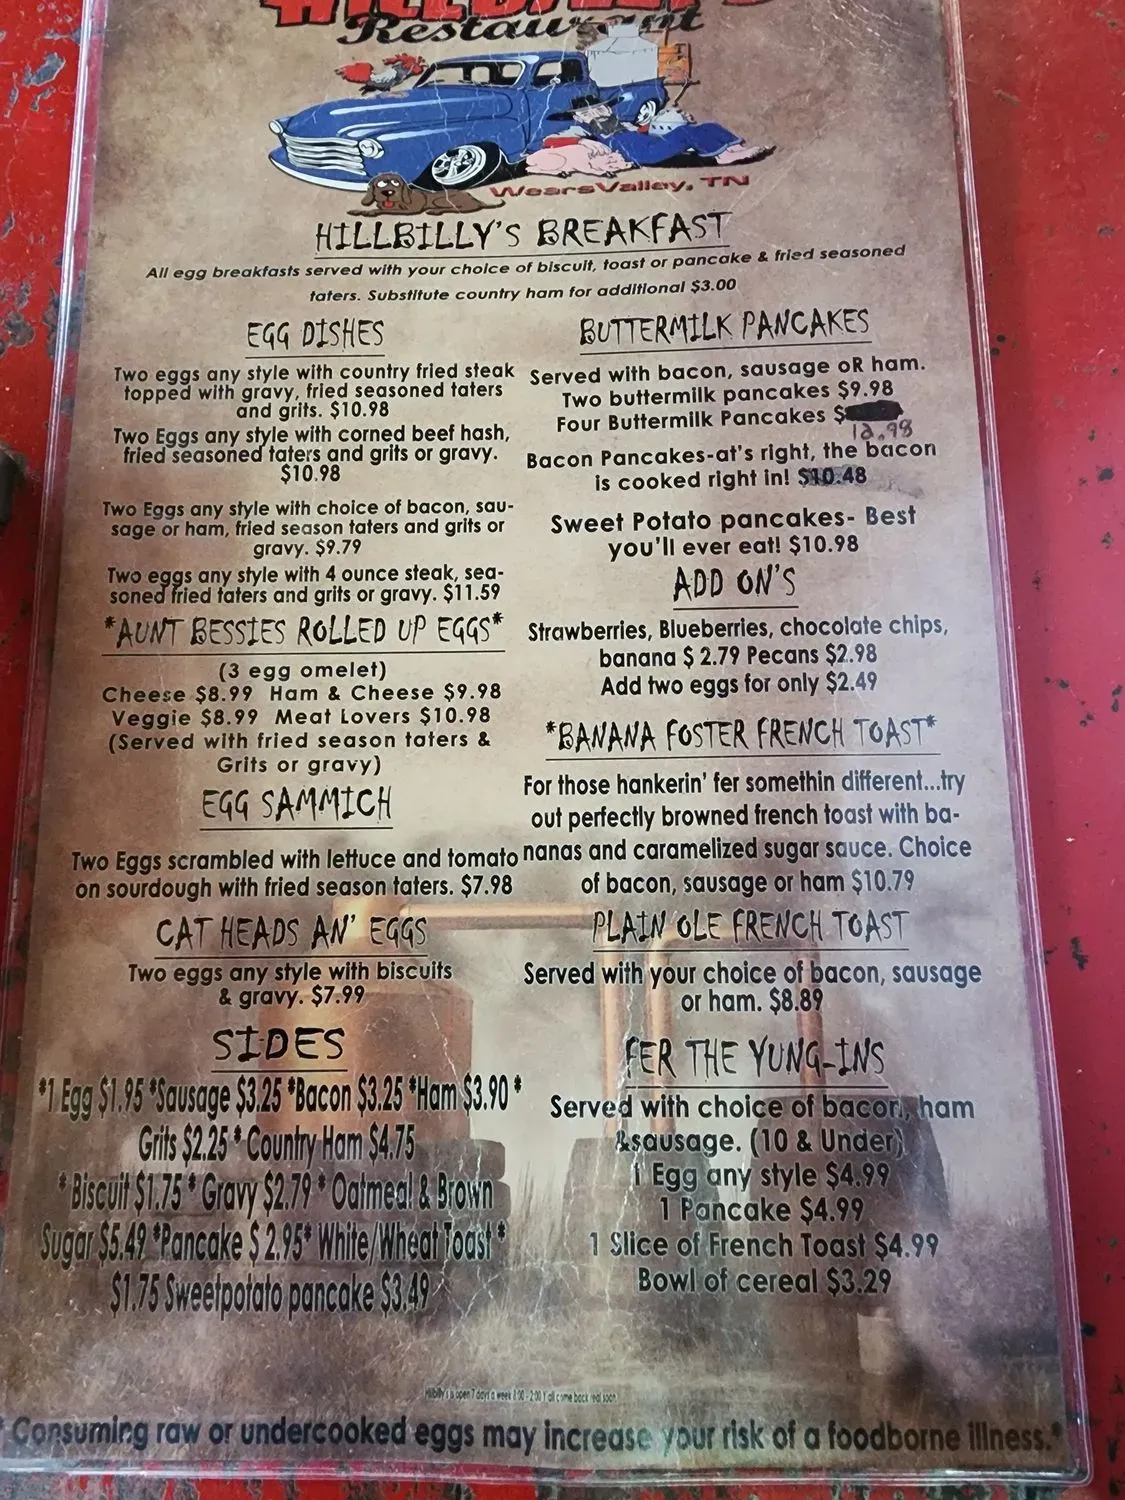 HILLBILLY'S
Restaurant
WearsValley, TN
HILLBILLY'S BREAKFAST
All egg breakfasts served with your choice of biscuit, toast or pancake & fried seasoned
taters. Substitute country ham for additional $3.00
EGG DISHES
Two eggs any style with country fried steak
topped with gravy, fried seasoned taters
and grits. $10.98
Two Eggs any style with corned beef hash,
fried seasoned taters and grits or gravy.
$10.98
Two Eggs any style with choice of bacon, sau-
sage or ham, fried season taters and grits or
gravy. $9.79
Two eggs any style with 4 ounce steak, sea-
soned fried taters and grits or gravy. $11.59
*AUNT BESSIES ROLLED UP EGGS*
(3 egg omelet)
Cheese $8.99 Ham & Cheese $9.98
Veggie $8.99 Meat Lovers $10.98
(Served with fried season taters &
Grits or gravy)
EGG SAMMICH
Two Eggs scrambled with lettuce and tomato
on sourdough with fried season taters. $7.98
CAT HEADS AN' EGGS
Two eggs any style with biscuits
& gravy. $7.99
SIDES
*1 Egg $1.95 *Sausage $3.25 *Bacon $3.25 *Ham $3.90 *
Grits $2.25 * Country Ham $4.75
* Biscuit $1.75 * Gravy $2.79 * Oatmeal & Brown
Sugar $5.49 *Pancake $ 2.95* White/Wheat Toast *
$1.75 Sweetpotato pancake $3.49
BUTTERMILK PANCAKES
Served with bacon, sausage oR ham.
Two buttermilk pancakes $9.98
Four Buttermilk Pancakes $
12.98
Bacon Pancakes-at's right, the bacon
is cooked right in! $10.48
Sweet Potato pancakes- Best
you'll ever eat! $10.98
ADD ON'S
Strawberries, Blueberries, chocolate chips,
banana $ 2.79 Pecans $2.98
Add two eggs for only $2.49
*BANANA FOSTER FRENCH TOAST*
For those hankerin' fer somethin different...try
out perfectly browned french toast with ba-
nanas and caramelized sugar sauce. Choice
of bacon, sausage or ham $10.79
PLAIN OLE FRENCH TOAST
Served with your choice of bacon, sausage
or ham. $8.89
FER THE YUNG-INS
Served with choice of bacon, ham
&sausage. (10 & Under)
1 Egg any style $4.99
1 Pancake $4.99
1 Slice of French Toast $4.99
Bowl of cereal $3.29
Hillbilly's is open 7 days a week 8:00 - 2:00 Y'all come back real soon
* Consuming raw or undercooked eggs may increase your risk of a foodborne illness.*